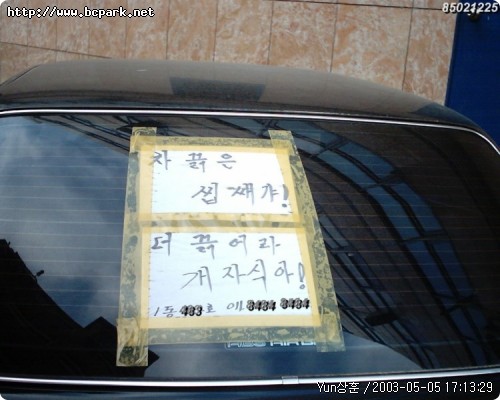 http://www.bcpark.net
85021225
차 끍은
씹쌔갸!
더 끍어라
개자식아!
1동 483호 011 8484 8484
Yun상훈 / 2003-05-05 17:13:29